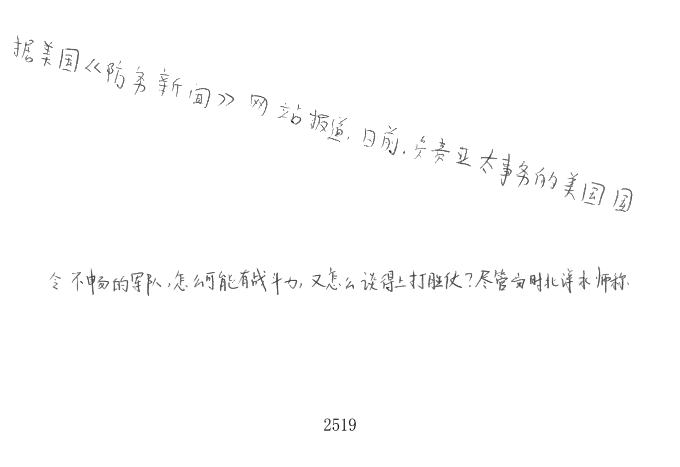 据美国《防务新闻》网站报道,日前,负责亚太事务的美国国
令不畅的军队,怎么可能有战斗力,又怎么谈得上打胜仗?尽管当时北洋水师称
2519